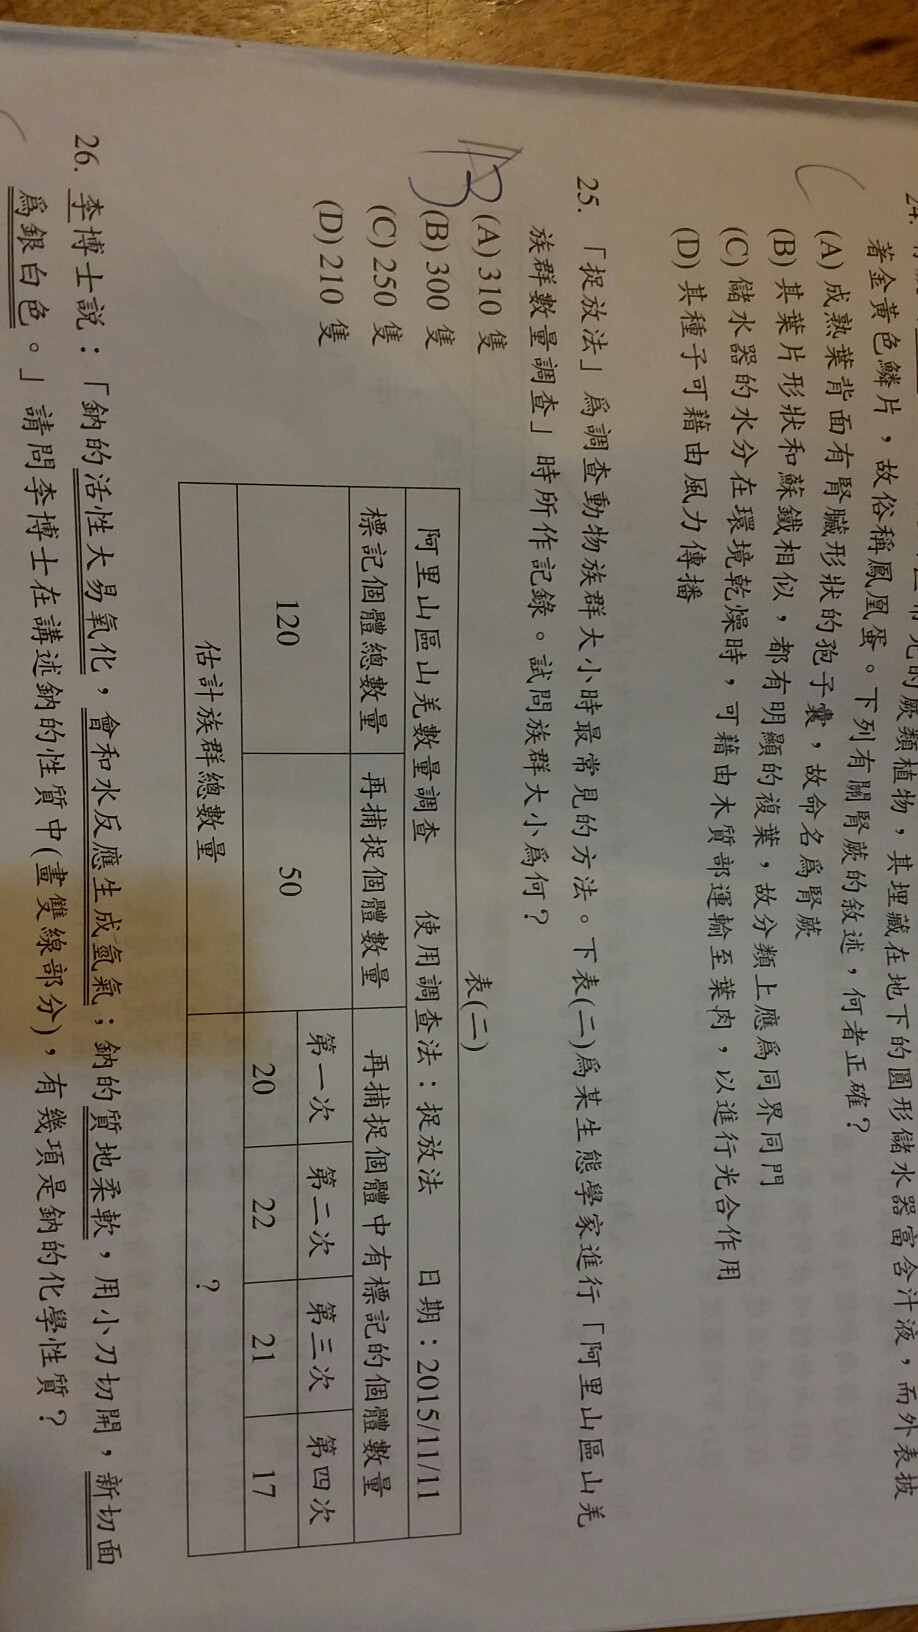 著金黃色鱗片，故俗稱鳳凰蛋。下列有關腎蕨的敘述，何者正確？
(A) 成熟葉背面有腎臟形狀的孢子囊，故命名為腎蕨
(B) 其葉片形狀和蘇鐵相似，都有明顯的複葉，故分類上應為同界同門
(C) 儲水器的水分在環境乾燥時，可藉由木質部運輸至葉肉，以進行光合作用
(D) 其種子可藉由風力傳播
25. 「捉放法」為調查動物族群大小時最常見的方法。下表(二)為某生態學家進行「阿里山區山羌
族群數量調查」時所作記錄。試問族群大小為何？
(A) 310 隻
(B) 300 隻
(C) 250 隻
(D) 210 隻
表(二)
阿里山區山羌數量調查 使用調查法：捉放法 日期：2015/11/11
標記個體總數量 再捕捉個體數量 再捕捉個體中有標記的個體數量
第一次 第二次 第三次 第四次
120 50 20 22 21 17
估計族群總數量 ?
26. 李博士說：「鈉的活性大易氧化，會和水反應生成氫氣；鈉的質地柔軟，用小刀切開，新切面
為銀白色。」請問李博士在講述鈉的性質中(畫雙線部分)，有幾項是鈉的化學性質？